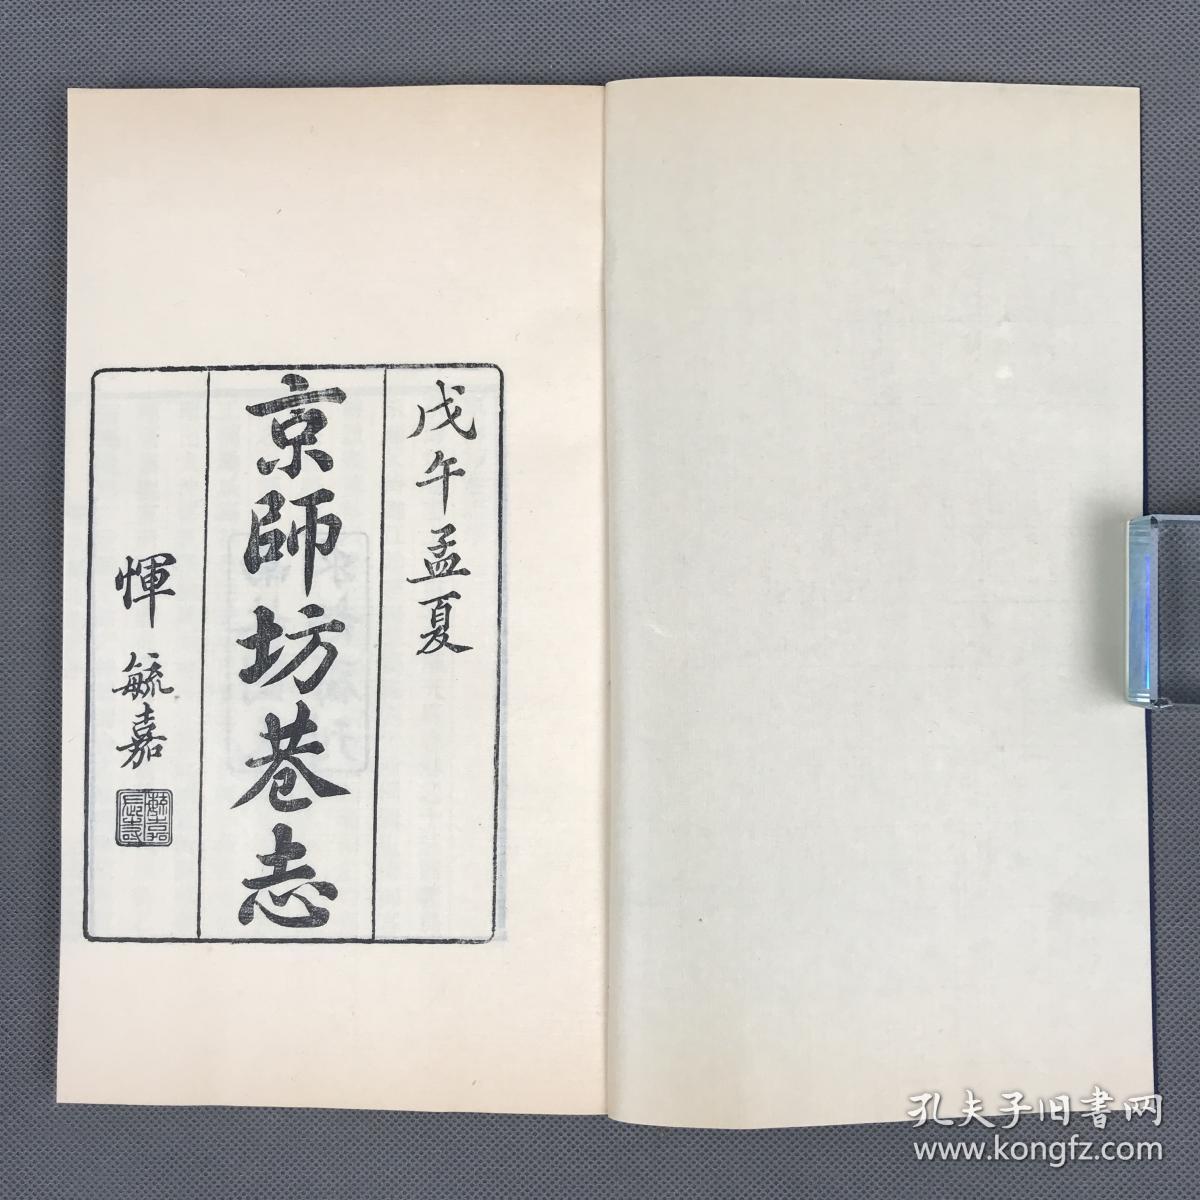 戊午孟夏
京師坊巷志
惲毓嘉
孔夫子旧書网
www.kongfz.com